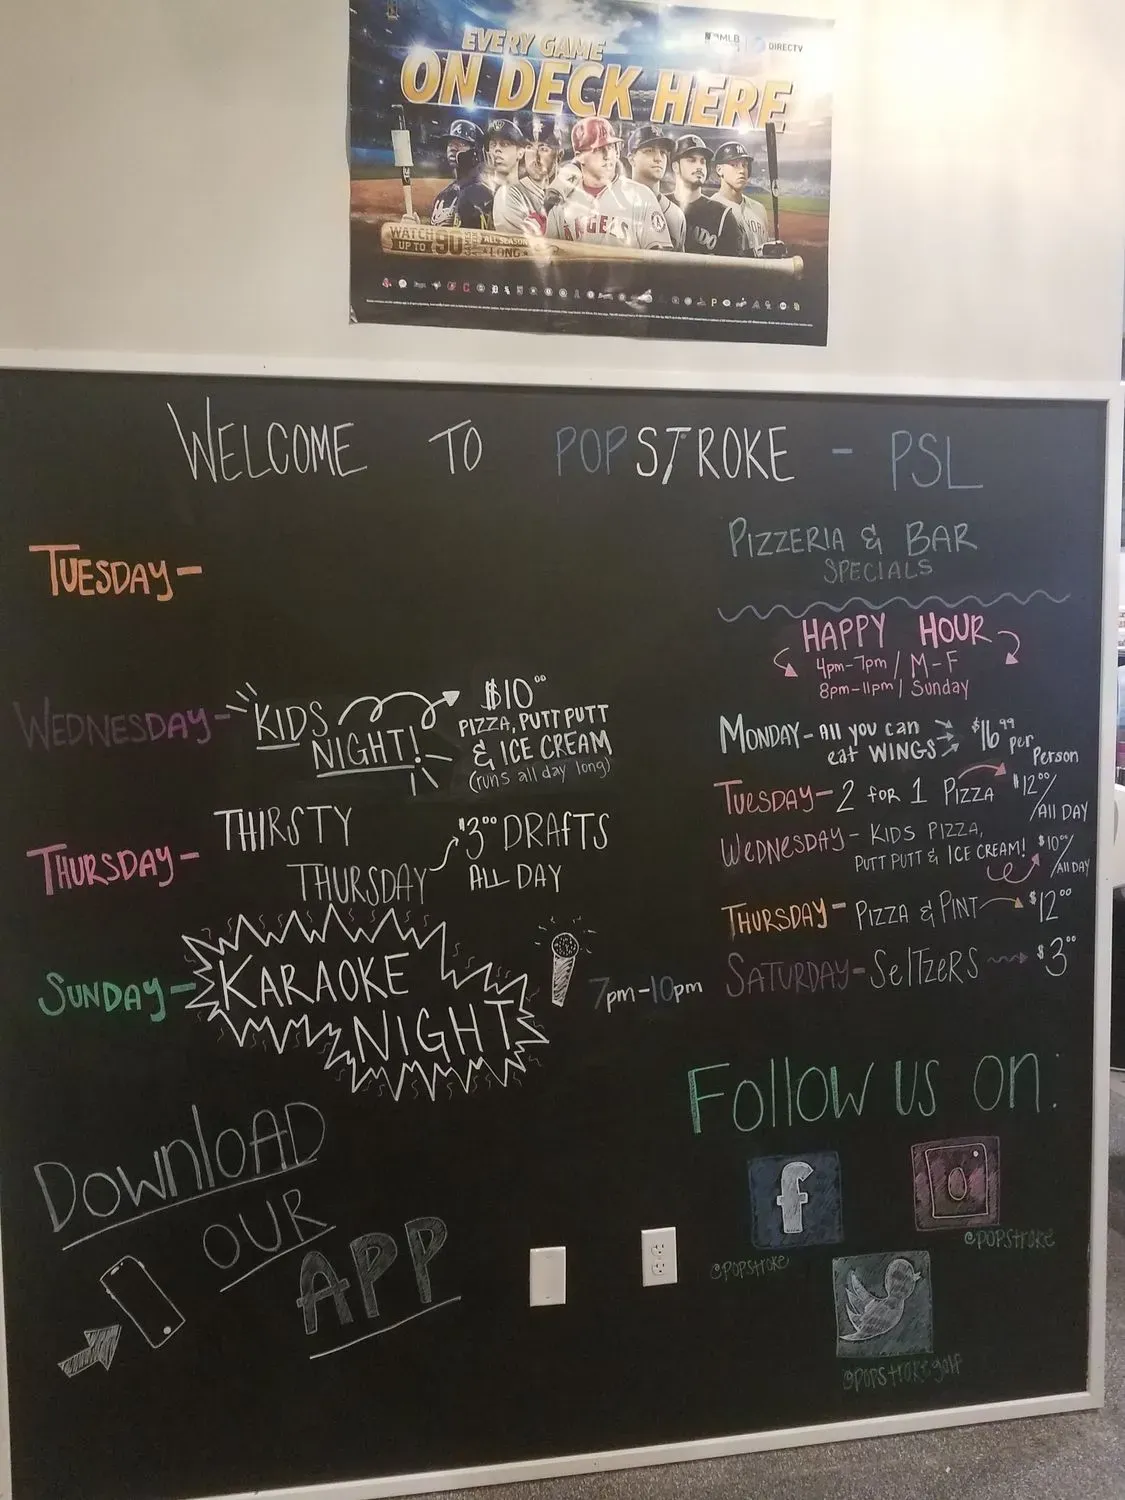 EVERY GAME
ON DECK HERE
MLB
DIRECTV
ANGELS
WATCH
UP TO
90
ALL SEASON
LONG
WELCOME TO POPSTROKE - PSL
TUESDAY-
WEDNESDAY- KIDS NIGHT!
$10.00
PIZZA, PUTT PUTT
& ICE CREAM
(runs all day long)
THURSDAY- THIRSTY THURSDAY
$3.00 DRAFTS
ALL DAY
SUNDAY- KARAOKE NIGHT
7pm-10pm
PIZZERIA & BAR
SPECIALS
HAPPY HOUR
4pm-7pm / M-F
8pm-11pm / Sunday
MONDAY- All you can eat WINGS $16.99 per Person
TUESDAY- 2 FOR 1 PIZZA $12.00/All DAY
WEDNESDAY- KIDS PIZZA,
PUTT PUTT & ICE CREAM! $10.00/All DAY
THURSDAY- PIZZA & PINT $12.00
SATURDAY- SelTzeRS $3.00
Follow us on:
f
@POPSTROKE
@POPSTROKE
@popstrokegolf
DOWNlOAD
OUR
APP